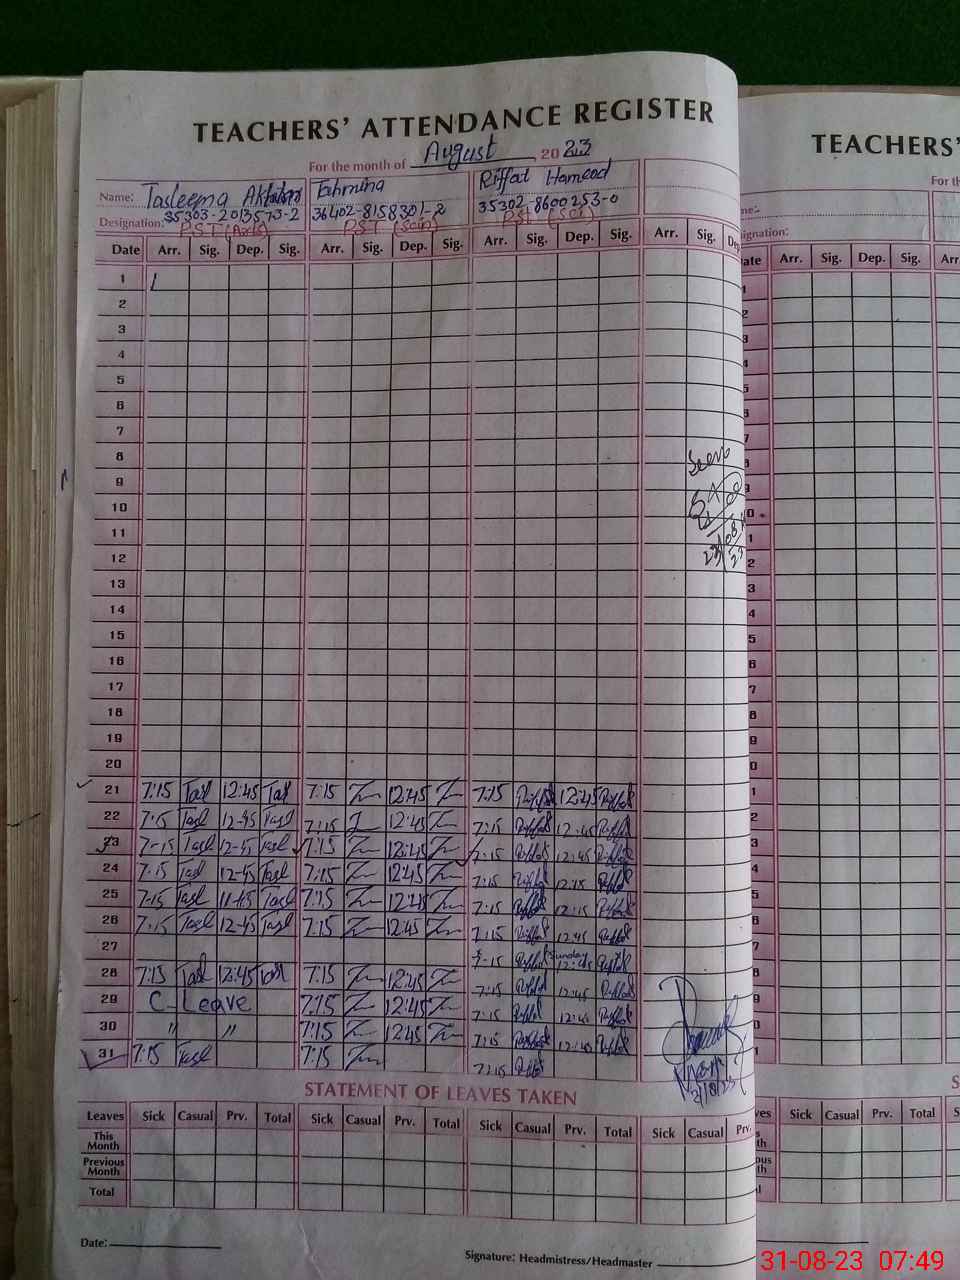 TEACHERS' ATTENDANCE REGISTER
For the month of August 2023
Name: Tasleema Akhtar Tahmina Riffat Hameed
35303-2013573-2 36402-8158301-2 35302-8600253-0
Designation: P.S.T (Arts) P.S.T (Scin) P.S.T (Sci)
Date Arr. Sig. Dep. Sig. Arr. Sig. Dep. Sig. Arr. Sig. Dep. Sig. Arr. Sig.
1
2
3
4
5
6
7
8 Seen
9
10
11
12
13
14
15
16
17
18
19
20
21 7:15 Tasl 12:45 Tasl 7:15 12:45 7:15 Riffat 12:45 Riffat
22 7:15 Tasl 12-45 Tasl 7:15 12:45 7:15 Riffat 12:45 Riffat
23 7-15 Tasl 12-45 Tasl 7:15 12:45 7:15 Riffat 12:45 Riffat
24 7:15 Tasl 12-45 Tasl 7:15 12:45 7:15 Riffat 12:15 Riffat
25 7-15 Tasl 11-45 Tasl 7:15 12:45 7:15 Riffat 12:15 Riffat
26 7:15 Tasl 12-45 Tasl 7:15 12:45 7:15 Riffat 12:45 Riffat
27 7-15 Riffat Sunday 12:45 Riffat
28 7:15 Tasl 12:45 Tasl 7:15 12:45 7:15 Riffat 12:45 Riffat
29 C-Leave 7:15 12:45 7:15 Riffat 12:45 Riffat
30 " " 7:15 12:45 7:15 Riffat 12:45 Riffat
31 7:15 Tasl 7:15 7:15 Riffat
STATEMENT OF LEAVES TAKEN
Leaves Sick Casual Prv. Total Sick Casual Prv. Total Sick Casual Prv. Total Sick Casual Prv.
This Month
Previous Month
Total
Date:
Signature: Headmistress/Headmaster
TEACHERS'
For th
Arr. Sig. Dep. Sig. Arr
Sick Casual Prv. Total Sick
31-08-23 07:49